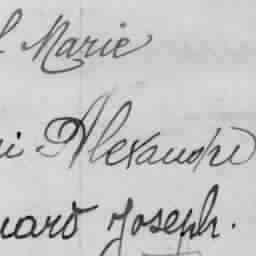 Marie
Alexandre
Joseph.